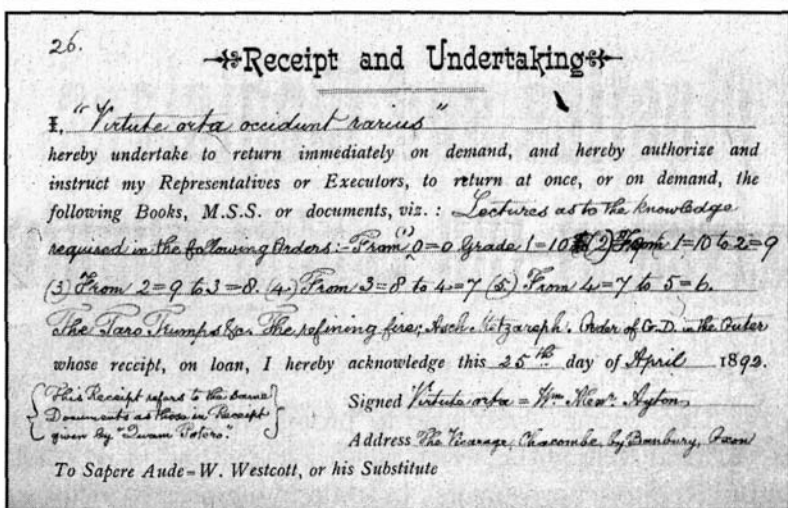 26.
Receipt and Undertaking
I, "Virtute orta occidunt rarius"
hereby undertake to return immediately on demand, and hereby authorize and
instruct my Representatives or Executors, to return at once, or on demand, the
following Books, M.S.S. or documents, viz. : Lectures as to the knowledge
required in the following Orders:- From (1) 0=0 Grade 1=10 (2) From 1=10 to 2=9
(3) From 2=9 to 3=8. (4) From 3=8 to 4=7 (5) From 4=7 to 5=6.
The Taro Trumps &c. The refining fire; Asch Metzareph. Order of G.D. in the Outer
whose receipt, on loan, I hereby acknowledge this 25th day of April 1892.
{This Receipt refers to the same
Documents as those in Receipt
given by "Quam Potero."}
Signed Virtute orta = Wm Alexr. Ayton
Address The Vicarage, Chacombe, by Banbury, Oxon
To Sapere Aude=W. Westcott, or his Substitute